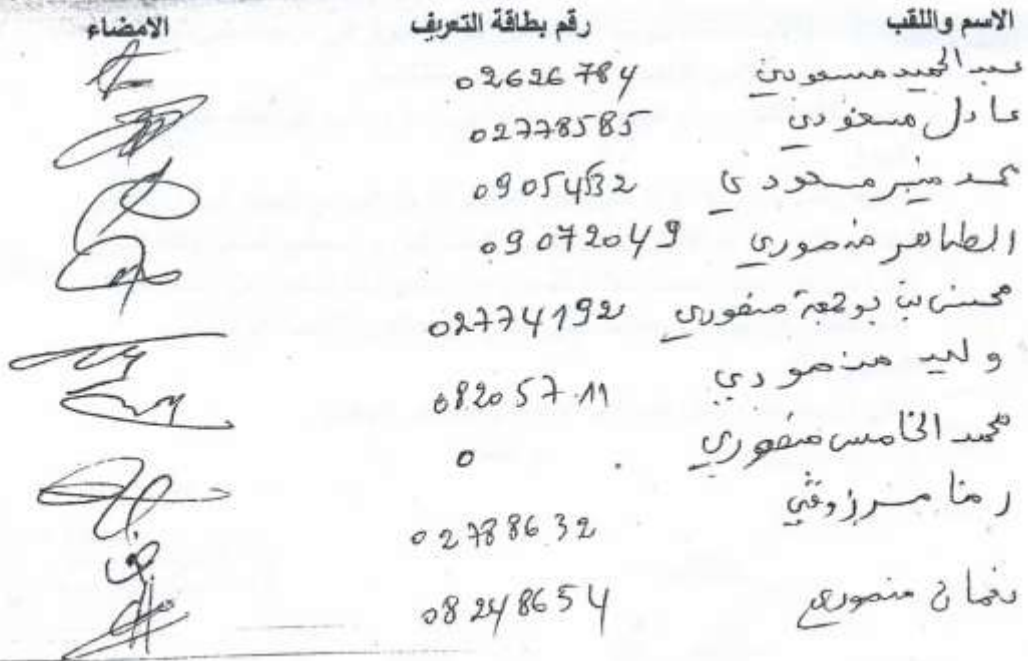 الاسم واللقب رقم بطاقة التعريف الامضاء
عبد الحميد مسعودي 02626784
عادل مسعودي 02778585
محمد منير مسعودي 09054532
الطاهر منصوري 09072049
محسن بن بوجمعة منصوري 02774192
وليد منصوري 08205711
محمد الخامس منصوري 0
رضا مرزوقي 02788632
نعمان منصوري 08248654